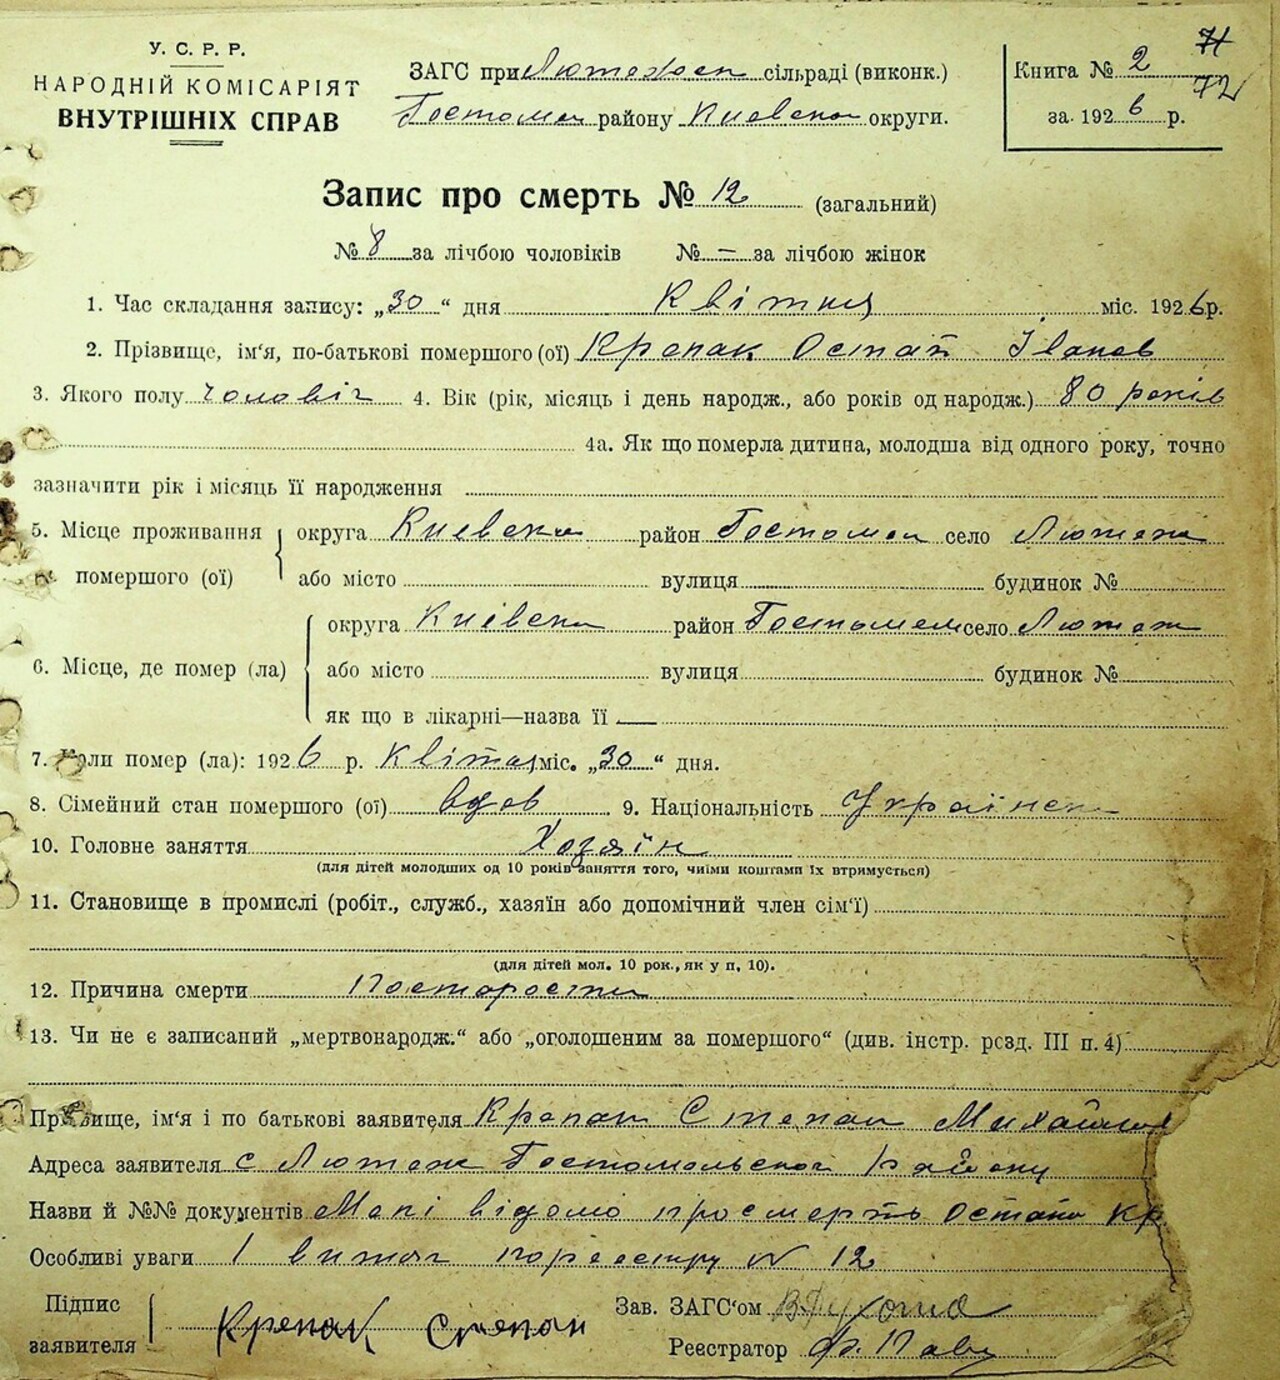 У. С. Р. Р.
НАРОДНІЙ КОМІСАРІЯТ
ВНУТРІШНІХ СПРАВ
ЗАГС при сільраді (виконк.)
Гостомел району Киевско округи.
Книга № 2 71 72
за 1926 р.
Запис про смерть № 12 (загальний)
№ 8 за лічбою чоловіків № — за лічбою жінок
1. Час складання запису: „30“ дня Квітня міс. 1926 р.
2. Прізвище, ім'я, по-батькові помершого (ої) Крепак Остап Іванов
3. Якого полу чоловіч 4. Вік (рік, місяць і день народж., або років од народж.) 80 років
4а. Як що померла дитина, молодша від одного року, точно
зазначити рік і місяць її народження
5. Місце проживання помершого (ої) округа Киевска район Гостомел село Лютеж
або місто вулиця будинок №
6. Місце, де помер (ла) округа Київска район Гостомел село Лютеж
або місто вулиця будинок №
як що в лікарні—назва її —
7. Коли помер (ла): 1926 р. Квітня міс. „30“ дня.
8. Сімейний стан помершого (ої) вдов 9. Національність Українец
10. Головне заняття Хозяїн
(для дітей молодших од 10 років заняття того, чиїми коштами їх втримується)
11. Становище в промислі (робіт., служб., хазяїн або допомічний член сім'ї)
(для дітей мол. 10 рок., як у п. 10).
12. Причина смерти Постарости
13. Чи не є записаний „мертвонародж.“ або „оголошеним за помершого“ (див. інстр. розд. III п. 4)
Прізвище, ім'я і по батькові заявителя Крепак Степан
Адреса заявителя с Лютеж Гостомольског району
Назви й №№ документів Мені відомо просмерть Остапа Кр
Особливі уваги 1 витяг пореестру № 12
Підпис заявителя Крепак Степан
Зав. ЗАГС'ом
Реєстратор